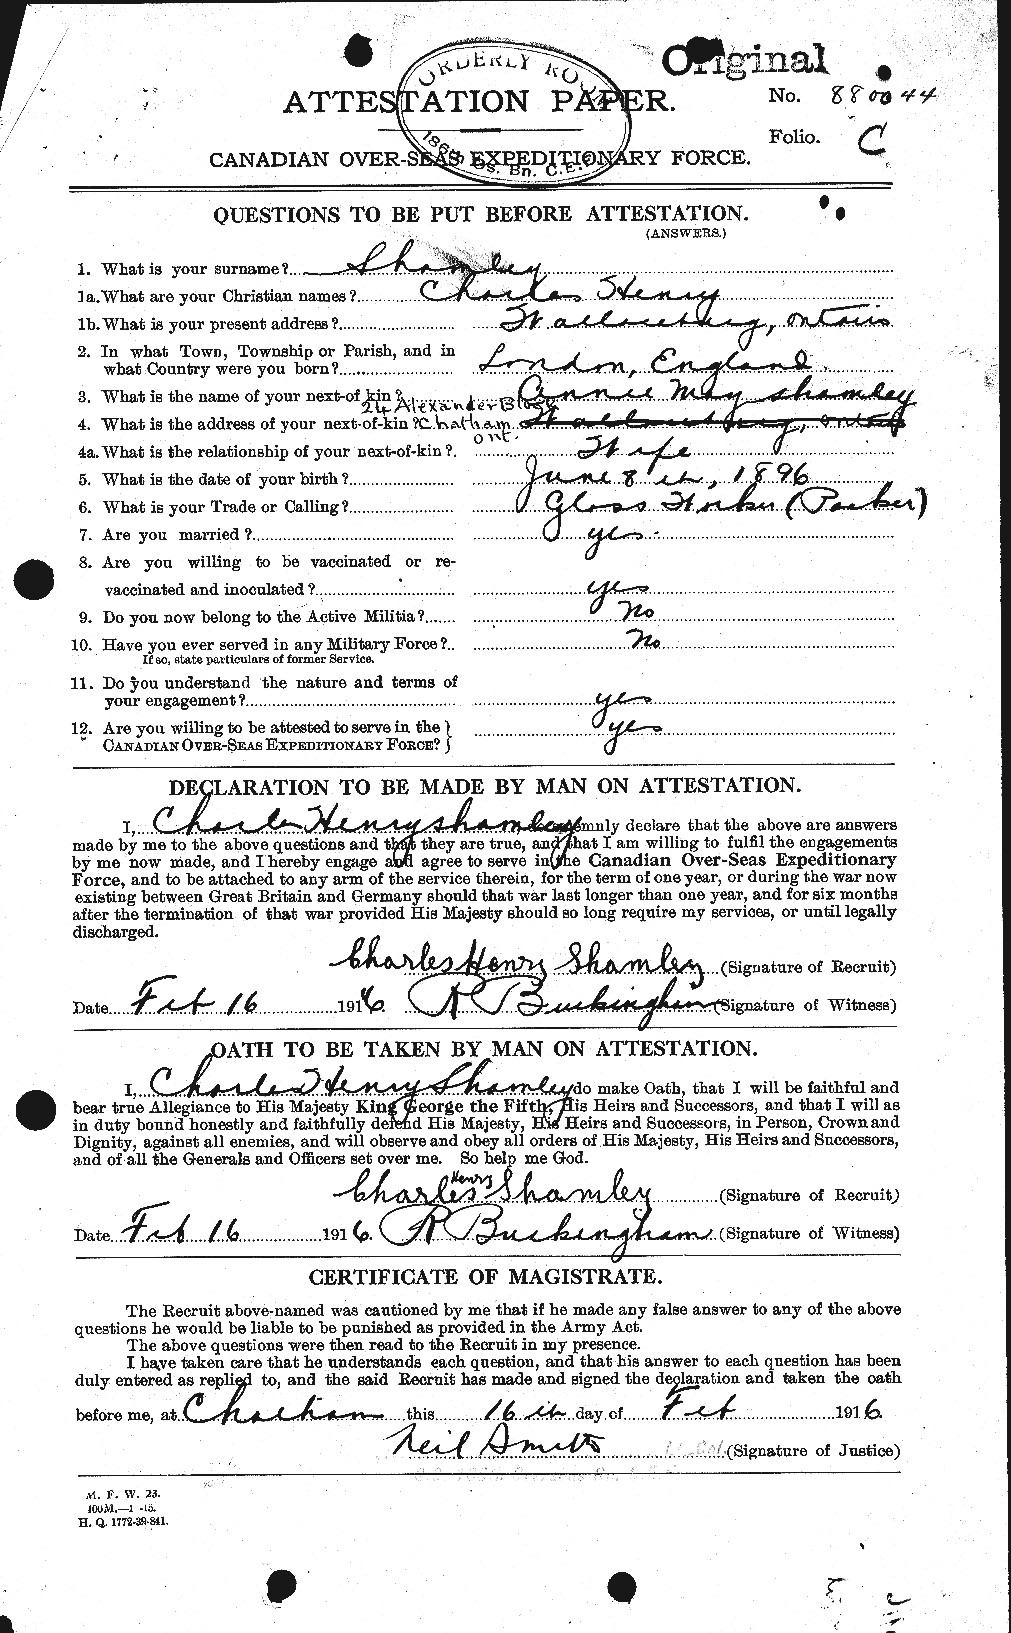 Original
ORDERLY ROOM
186th Os. Bn. C.E.F.
No. 880044
ATTESTATION PAPER.
Folio. C
CANADIAN OVER-SEAS EXPEDITIONARY FORCE.
QUESTIONS TO BE PUT BEFORE ATTESTATION.
(ANSWERS.)
1. What is your surname? Shamley
1a. What are your Christian names? Charles Henry
1b. What is your present address? Wallaceburg, Ontario
2. In what Town, Township or Parish, and in
what Country were you born? London, England
3. What is the name of your next-of kin? Annie May Shamley
24 Alexander Block
4. What is the address of your next-of-kin? Chatham Wallaceburg, Ontario
Ont.
4a. What is the relationship of your next-of-kin? Wife
5. What is the date of your birth? June 8th, 1896
6. What is your Trade or Calling? Glass Worker (Packer)
7. Are you married? yes.
8. Are you willing to be vaccinated or re-
vaccinated and inoculated? yes
9. Do you now belong to the Active Militia? No
10. Have you ever served in any Military Force? No
If so, state particulars of former Service.
11. Do you understand the nature and terms of
your engagement? yes
12. Are you willing to be attested to serve in the } yes
CANADIAN OVER-SEAS EXPEDITIONARY FORCE? }
DECLARATION TO BE MADE BY MAN ON ATTESTATION.
I, Charles Henry Shamley solemnly declare that the above are answers
made by me to the above questions and that they are true, and that I am willing to fulfil the engagements
by me now made, and I hereby engage and agree to serve in the Canadian Over-Seas Expeditionary
Force, and to be attached to any arm of the service therein, for the term of one year, or during the war now
existing between Great Britain and Germany should that war last longer than one year, and for six months
after the termination of that war provided His Majesty should so long require my services, or until legally
discharged.
Charles Henry Shamley (Signature of Recruit)
Date Feb 16 1916. R Buckingham (Signature of Witness)
OATH TO BE TAKEN BY MAN ON ATTESTATION.
I, Charles Henry Shamley do make Oath, that I will be faithful and
bear true Allegiance to His Majesty King George the Fifth, His Heirs and Successors, and that I will as
in duty bound honestly and faithfully defend His Majesty, His Heirs and Successors, in Person, Crown and
Dignity, against all enemies, and will observe and obey all orders of His Majesty, His Heirs and Successors,
and of all the Generals and Officers set over me. So help me God.
Charles Henry Shamley (Signature of Recruit)
Date Feb 16 1916. R Buckingham (Signature of Witness)
CERTIFICATE OF MAGISTRATE.
The Recruit above-named was cautioned by me that if he made any false answer to any of the above
questions he would be liable to be punished as provided in the Army Act.
The above questions were then read to the Recruit in my presence.
I have taken care that he understands each question, and that his answer to each question has been
duly entered as replied to, and the said Recruit has made and signed the declaration and taken the oath
before me, at Chatham this 16th day of Feb 1916
Neil Smith Lt. Col. (Signature of Justice)
M. F. W. 23.
400M.—1-15.
H. Q. 1772-39-841.